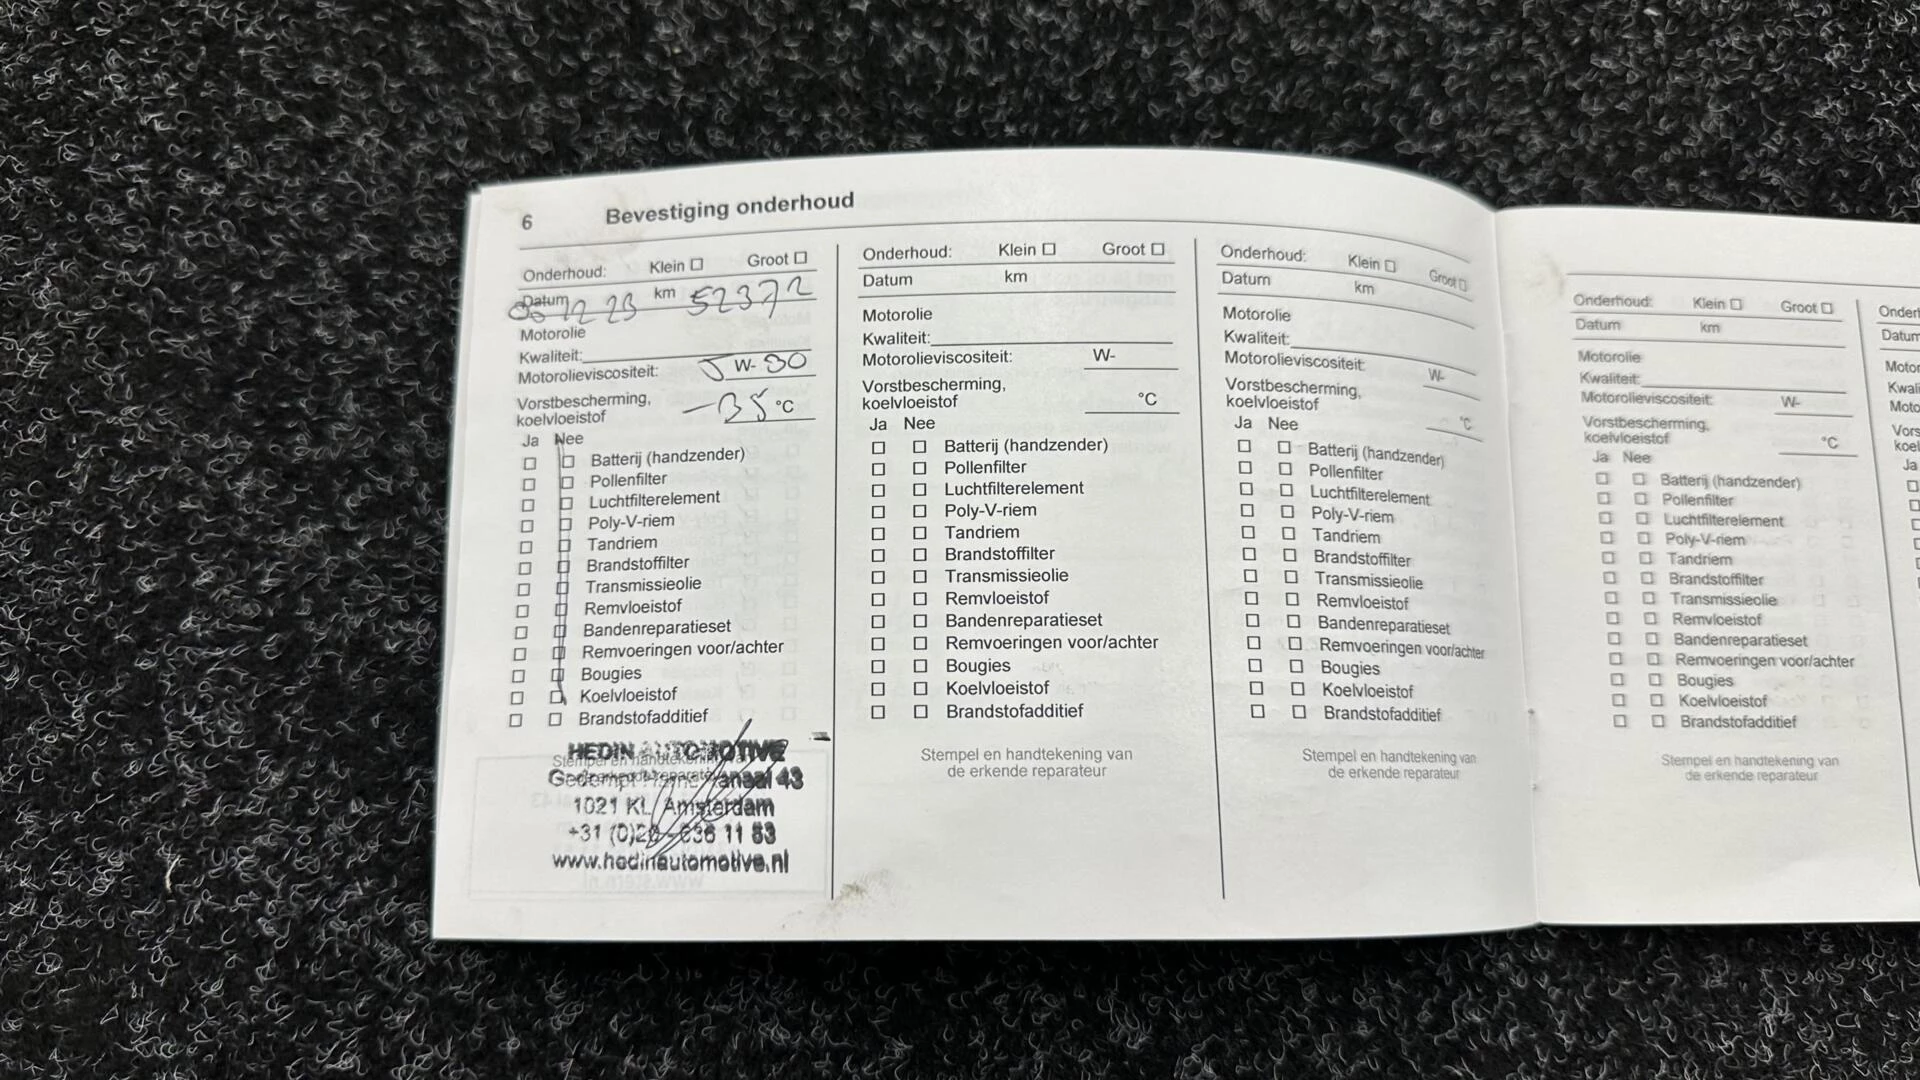 6 Bevestiging onderhoud
Onderhoud: Klein Groot
Datum km 52372
12 23
Motorolie
Kwaliteit:
Motorolieviscositeit: 5 W- 30
Vorstbescherming,
koelvloeistof -35 °C
Ja Nee
Batterij (handzender)
Pollenfilter
Luchtfilterelement
Poly-V-riem
Tandriem
Brandstoffilter
Transmissieolie
Remvloeistof
Bandenreparatieset
Remvoeringen voor/achter
Bougies
Koelvloeistof
Brandstofadditief
HEDIN AUTOMOTIVE
Stempel en handtekening van
43
1021 KL Amsterdam
+31 (0)20 - 636 11 83
www.hedinautomotive.nl
Onderhoud: Klein Groot
Datum km
Motorolie
Kwaliteit:
Motorolieviscositeit: W-
Vorstbescherming,
koelvloeistof °C
Ja Nee
Batterij (handzender)
Pollenfilter
Luchtfilterelement
Poly-V-riem
Tandriem
Brandstoffilter
Transmissieolie
Remvloeistof
Bandenreparatieset
Remvoeringen voor/achter
Bougies
Koelvloeistof
Brandstofadditief
Stempel en handtekening van
de erkende reparateur
Onderhoud: Klein Groot
Datum km
Motorolie
Kwaliteit:
Motorolieviscositeit: W-
Vorstbescherming,
koelvloeistof °C
Ja Nee
Batterij (handzender)
Pollenfilter
Luchtfilterelement
Poly-V-riem
Tandriem
Brandstoffilter
Transmissieolie
Remvloeistof
Bandenreparatieset
Remvoeringen voor/achter
Bougies
Koelvloeistof
Brandstofadditief
Stempel en handtekening van
de erkende reparateur
Onderhoud: Klein Groot
Datum km
Motorolie
Kwaliteit:
Motorolieviscositeit: W-
Vorstbescherming,
koelvloeistof °C
Ja Nee
Batterij (handzender)
Pollenfilter
Luchtfilterelement
Poly-V-riem
Tandriem
Brandstoffilter
Transmissieolie
Remvloeistof
Bandenreparatieset
Remvoeringen voor/achter
Bougies
Koelvloeistof
Brandstofadditief
Stempel en handtekening van
de erkende reparateur
Ja